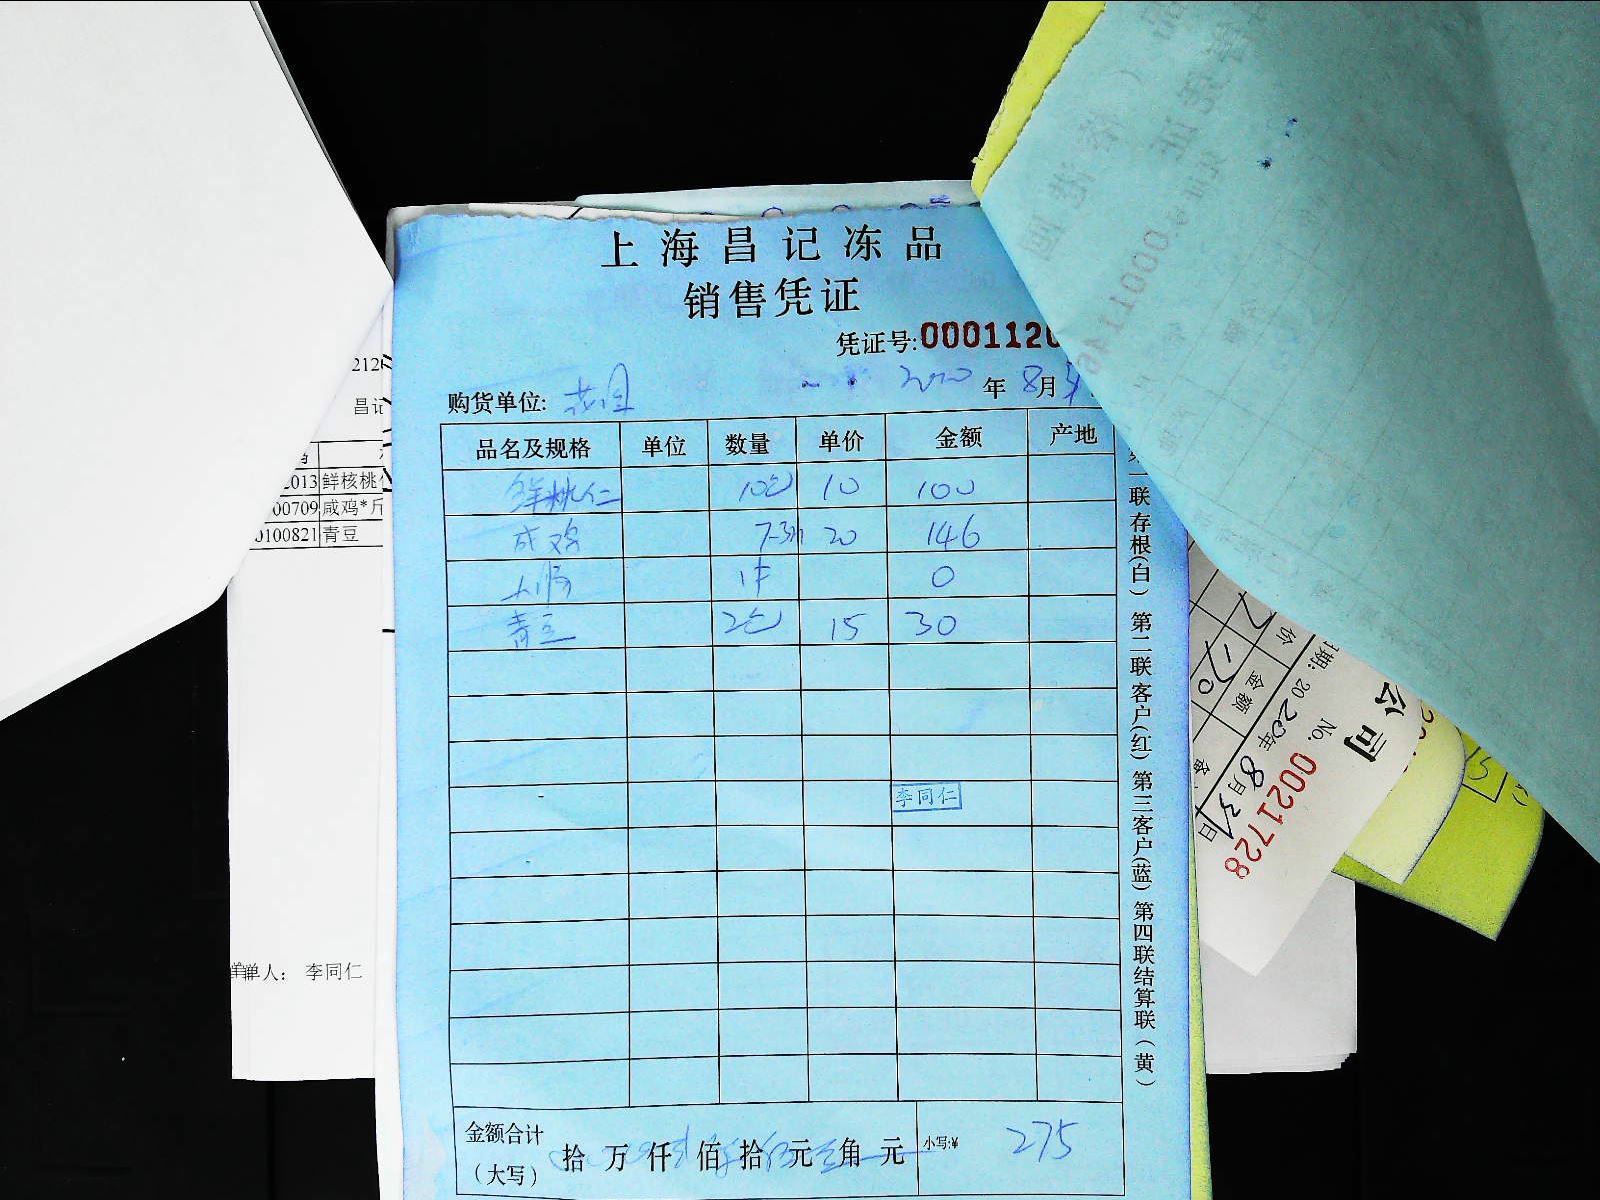 上海昌记冻品
销售凭证
凭证号:0001120
购货单位: 花园 2020 年 8月31
品名及规格 单位 数量 单价 金额 产地
鲜桃仁 10包 10 100
咸鸡 7.3斤 20 146
1件 0
青豆 2包 15 30
李同仁
金额合计
(大写)
拾 万 仟 佰 拾 元 角 元
小写:¥ 275
第一联存根(白) 第二联客户(红) 第三客户(蓝) 第四联结算联(黄)
212
昌记
2013 鲜核桃仁
00709 咸鸡*斤
0100821 青豆
单人: 李同仁
公司
No. 0021728
日期: 2020年8月31日
价 金额 备
120
00011